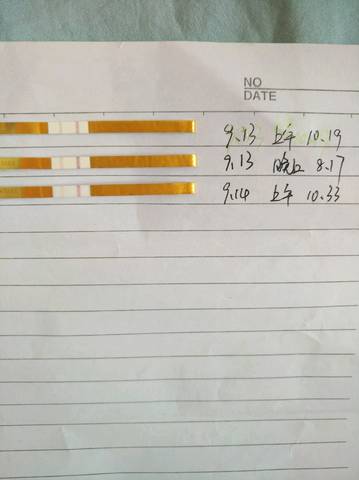 NO
DATE
9.13 上午 10.19
9.13 晚上 8.17
9.14 上午 10.33